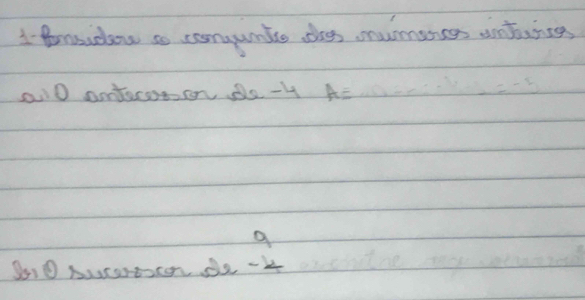 1-Considere o conjunto dos números inteiros
a) O antecessor de -4 A=
9
b) O sucessor de -4